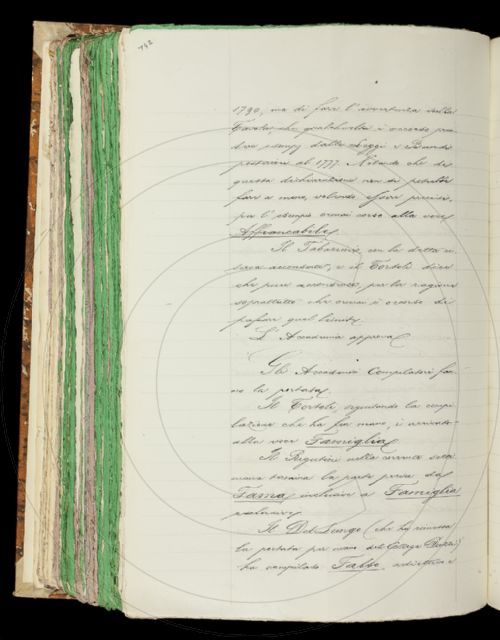 742
1790, ma di fare l'avvertenza nella
Tavola, che qualchevolta è occorso
esempj dalle Leggi e Bandi
posteriori al 1777. Notando che di
questa dichiarazione non si potrebbe
fare a meno, volendo essere precisi,
per l'esempio ormai corso alla voce
Affrancabile.
Il Tabarrini con la detta
acconsente, e il Tortoli dice
che pure acconsente, per la ragione
soprattutto che ormai è occorso di
passare quel limite.
L'Accademia approva.
Gli Accademici Compilatori fan-
no la portata.
Il Tortoli, seguitando la compi-
lazione che ha fra mano, è arrivato
alla voce Famiglia.
Il Rigutini nella corrente setti-
mana la parte presa da
Fama inclusive a Famiglia
esclusive.
Il Del Lungo (che ha rimessa
la portata per mano del Collega)
ha compilato Falbo, addiettivo e